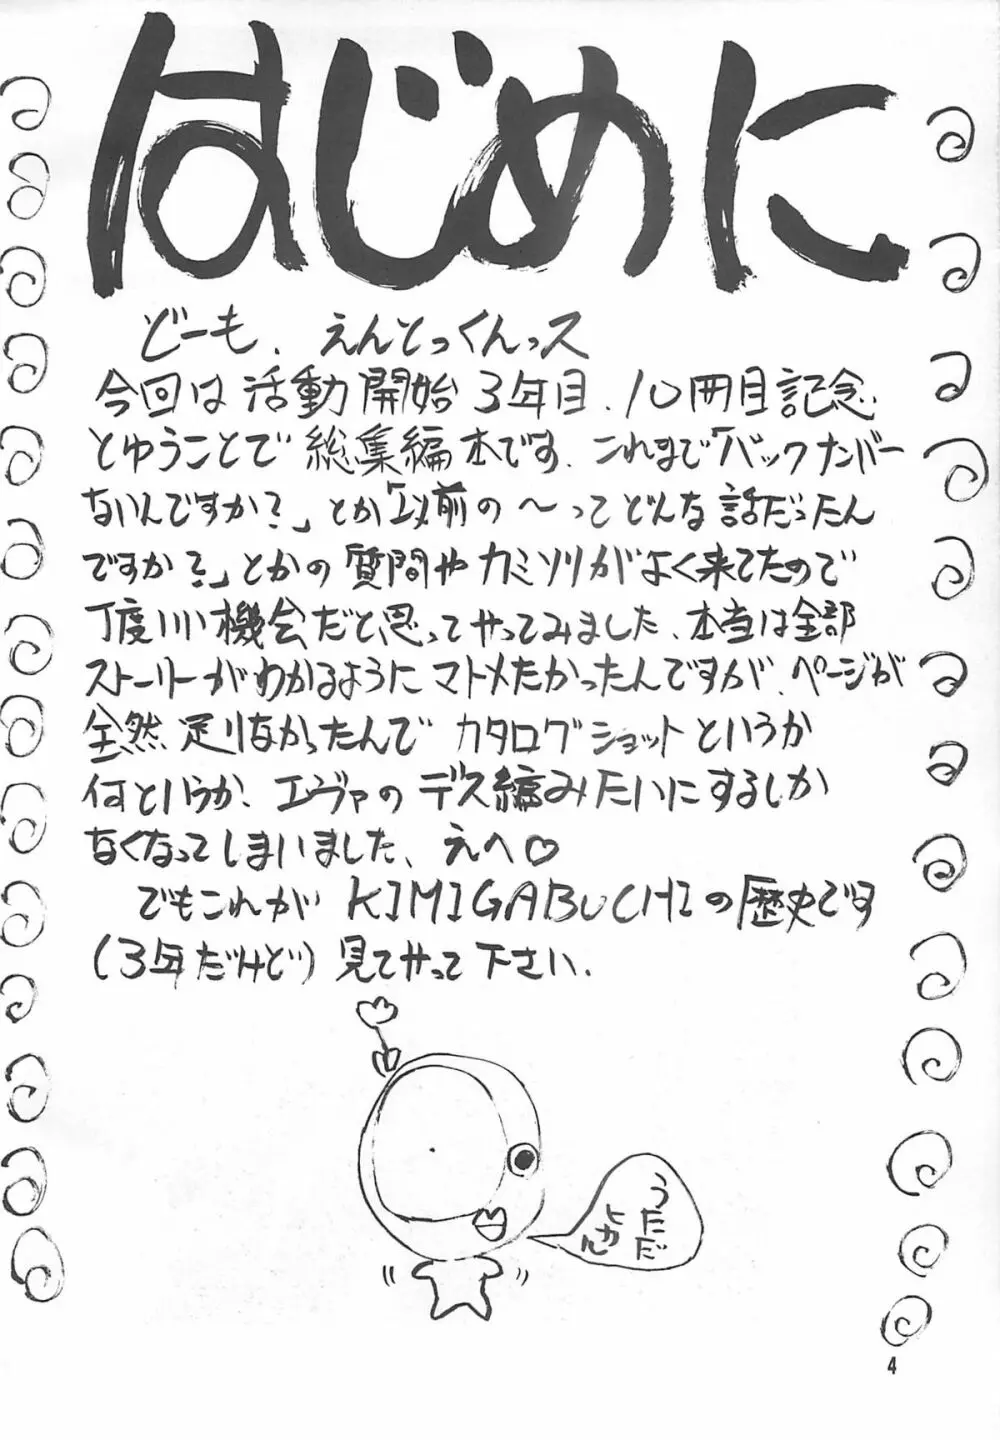 はじめに
どーも、えんとっくんっス
今回は活動開始3年目、10冊目記念
とゆうことで総集編本です、これまで「バックナンバー
ないんですか?」とか「以前の〜ってどんな話だったん
ですか?」とかの質問やカミソリがよく来てたので
丁度いい機会だと思ってやってみました、本当は全部
ストーリーがわかるようにマトメたかったんですが、ページが
全然足りなかったんでカタログショットというか
何というか、エヴァのデス編みたいにするしか
なくなってしまいました、えへ♡
でもこれがKIMIGABUCHIの歴史です
(3年だけど)見てやって下さい.
うただ
ヒカル
4